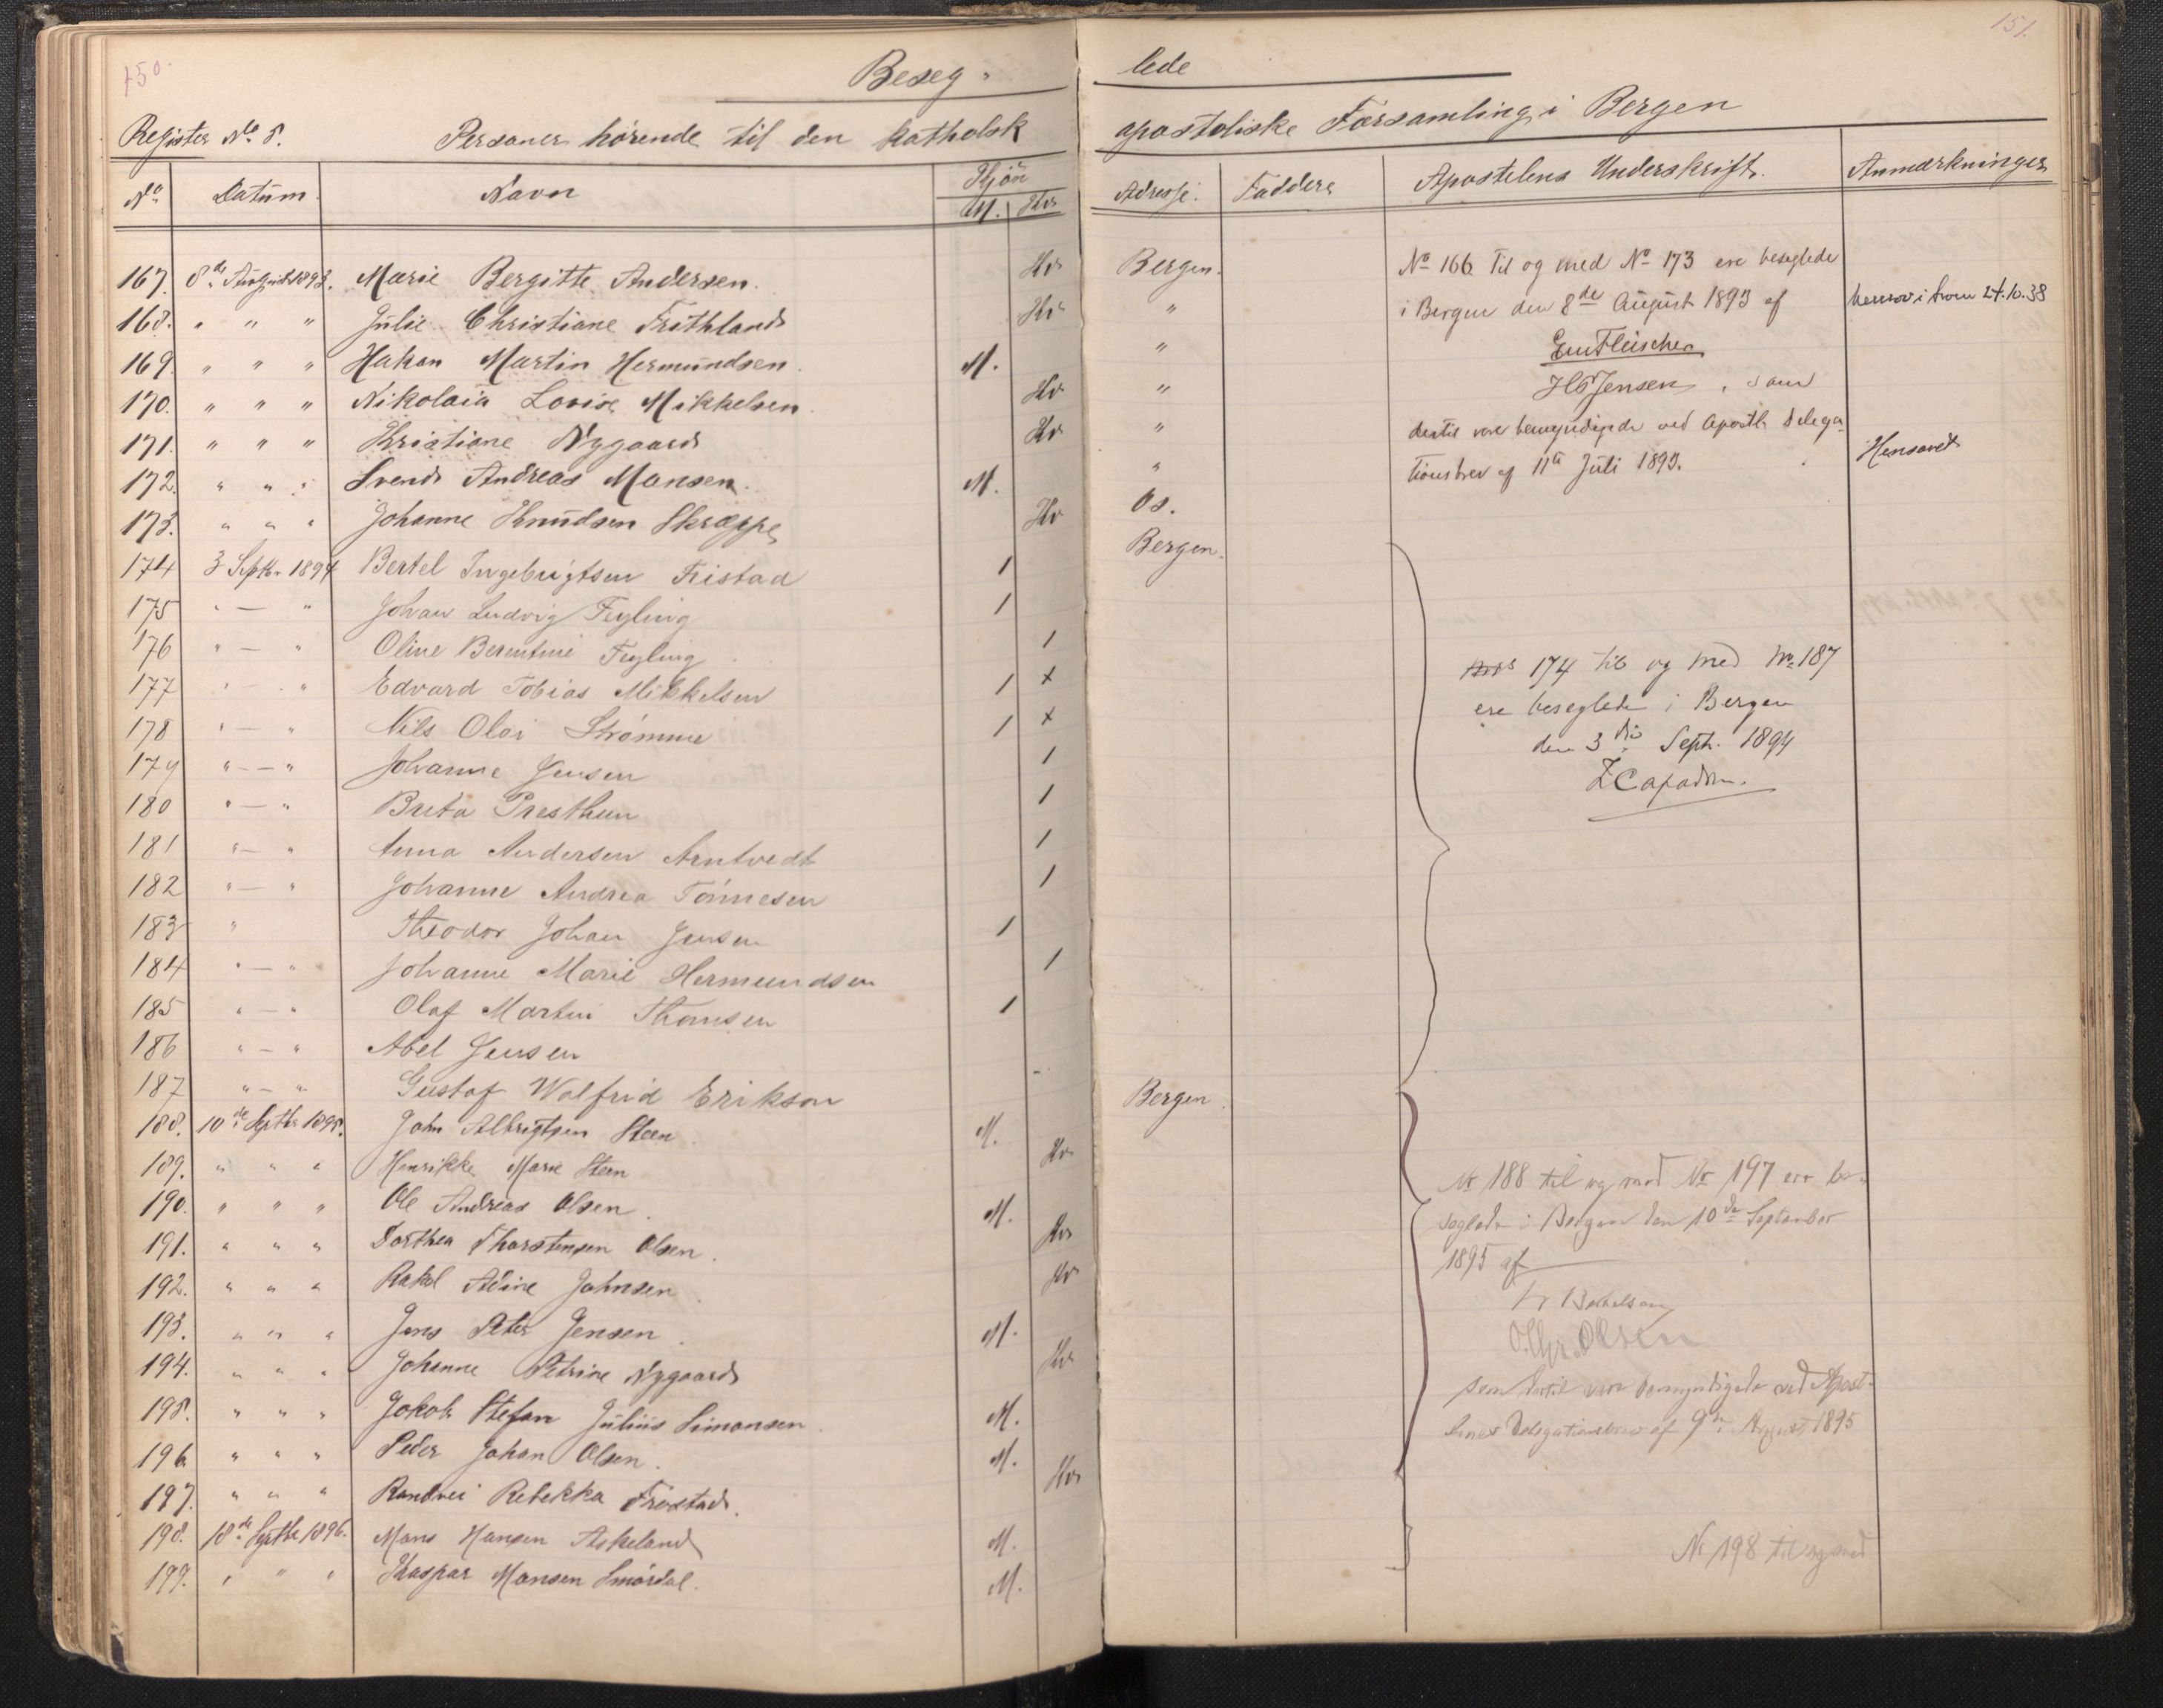 150.
Beseg-
Register No 8.
Personer hørende til den katholsk
No
Datum
Navn
Kjön
M. Kv
167. 8de August 1893. Marie Bergitte Andersen. Kv
168. " " " Julie Christiane Frithland Kv
169. " " " Hakon Martin Hermundsen. M.
170. " " " Nikolaia Lovise Mikkelsen. Kv
171. " " " Kristiane Nygaard Kv
172. " " " Svend Andreas Mansen. M.
173. " " " Johanne Knudsen Skrøppe Kv
174 3 Septbr 1894 Bertel Ingebrigtsen Fristad 1
175 " — " Johan Ludvig Feyling 1
176 " — " Oline Berentine Feyling 1
177 " — " Edvard Tobias Mikkelsen 1 x
178 " — " Nils Olai Strømme 1 x
179 " — " Johanne Jensen 1
180 " — " Brita Presthun 1
181 " — " Anna Andersen Arntvedt 1
182 " — " Johanne Andrea Tönnesen 1
183 " Theodor Johan Jensen 1
184 " — " Johanne Marie Hermundsen 1
185 " — " Olaf Martin Thomsen 1
186 " — " Abel Jensen
187 " — " Gustaf Walfrid Erikson
188. 10de Septbr 1895. John Albrigtsen Steen M.
189. " " " Henrikke Marie Steen Kv
190. " " " Ole Andreas Olsen. M.
191. " " " Dorthea Thorstensen Olsen. Kv
192. " " " Rakel Adine Johnsen. Kv
193. " " " Jens Peter Jensen. M.
194. " " " Johanne Petrine Nygaard Kv
195. " " " Jakob Stefan Julius Simonsen. M.
196. " " " Peder Johan Olsen. M.
197. " " " Randvei Rebekka Frostad. Kv
198. 18de Septbr 1896. Mons Hansen Askeland M.
199. " " " Kaspar Monsen Smördal. M.
151.
lede
apostoliske Forsamling i Bergen
Adresse.
Faddere
Apostelens Underskrift.
Anmærkninger
Bergen.
"
"
"
"
"
Os.
Bergen.
Bergen.
No 166 til og med No 173 ere beseglede
i Bergen den 8de August 1893 af
Em Fleischer
HCJensen, som
dertil vare bemyndigede ved Apostl. Delega-
tionsbrev af 11te Juli 1893.
24.10.38
Hensovet
174 til og med No 187
ere beseglede i Bergen
den 3die Septr. 1894
Capadose.
Nr 188 til og med Nr 197 ere be-
seglede i Bergen den 10de September
1895 af
O.Chr.Olsen
som dertil vare bemyndigede ved Apost-
lens Delegationsbrev af 9de August 1895
Nr 198 til og med